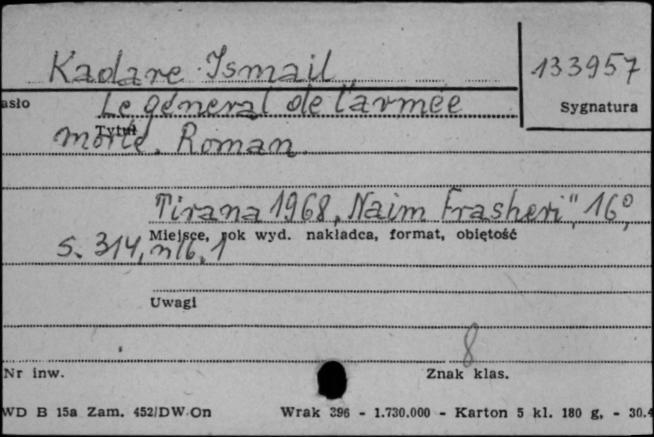 Kadare Ismail, 133957
asło Le général de l'armée Sygnatura
Tytuł
morte. Roman.
Tirana 1968, „Naim Frasheri", 16°,
Miejsce, rok wyd. nakładca, format, objętość
s. 314, nlb. 1
Uwagi
8
Nr inw. Znak klas.
WD B 15a Zam. 452/DW.On Wrak 396 - 1.730.000 - Karton 5 kl. 180 g, - 30.4